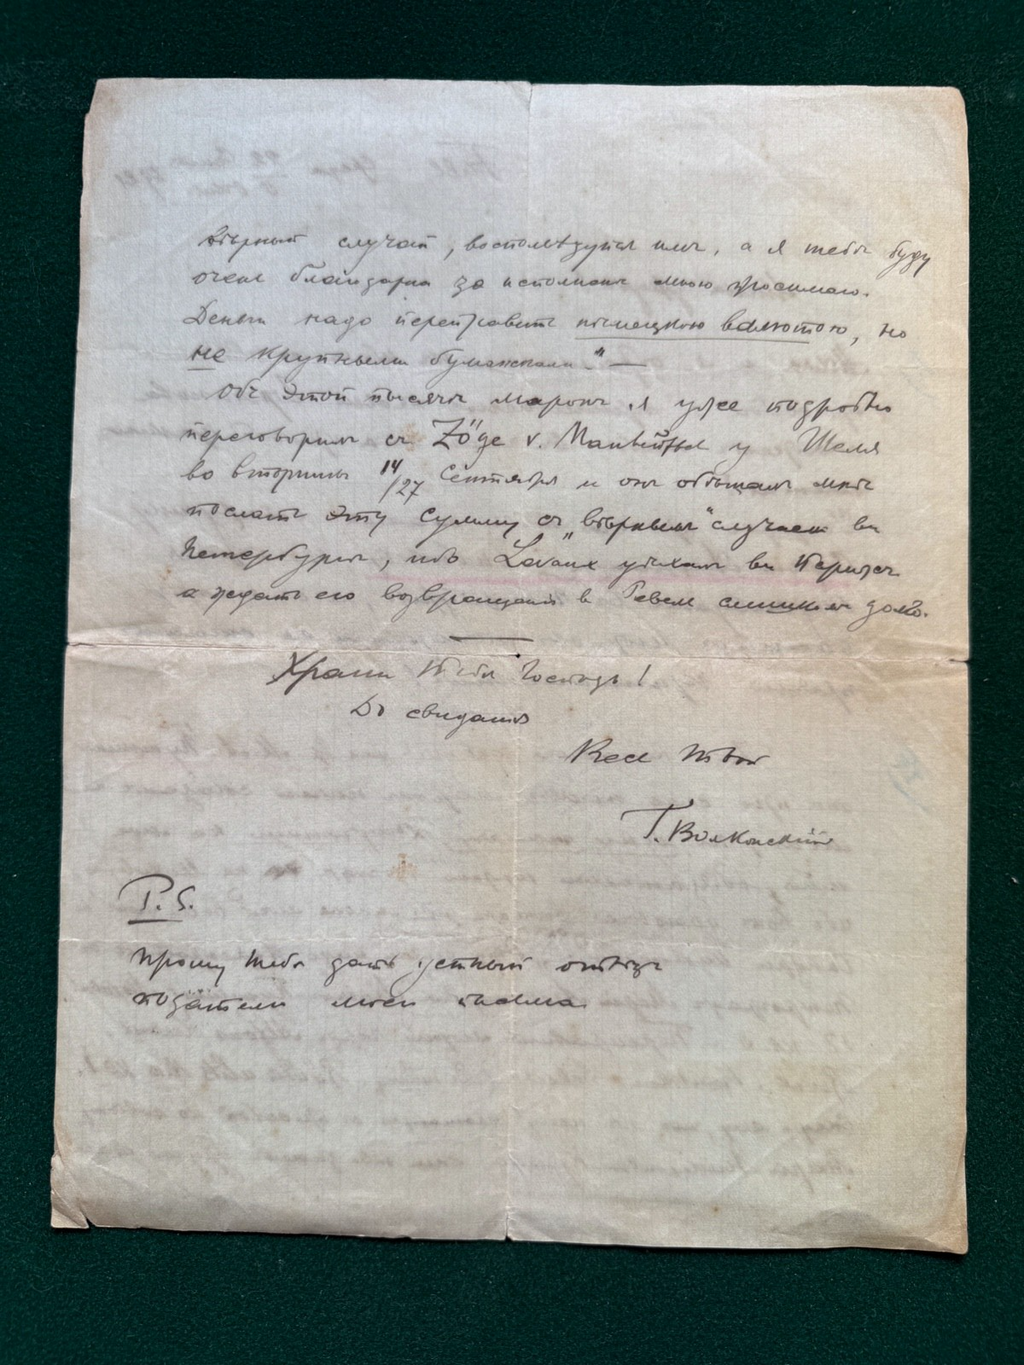 вѣрный случай, воспользуйся имъ, а я тебѣ буду
очень благодаренъ за исполненіе мною просимаго.
Деньги надо переправить нѣмецкою валютою, но
не крупными бумажками." —
Объ этой тысячѣ марокъ я уже подробно
переговорилъ съ Zöge v. Manteuffel у Шеля
во вторникъ 14/27 Сентября и онъ обѣщалъ мнѣ
послать эту сумму съ "вѣрнымъ" случаемъ въ
Петербургъ, ибо уѣхалъ въ Парижъ
а ждать его возвращенія въ Ревель слишкомъ долго.
Храни Тебя Господь!
До свиданія
Весь Твой
Г. Волконскій
P.S.
Прошу Тебя дать устный отвѣтъ
подателю моего письма.